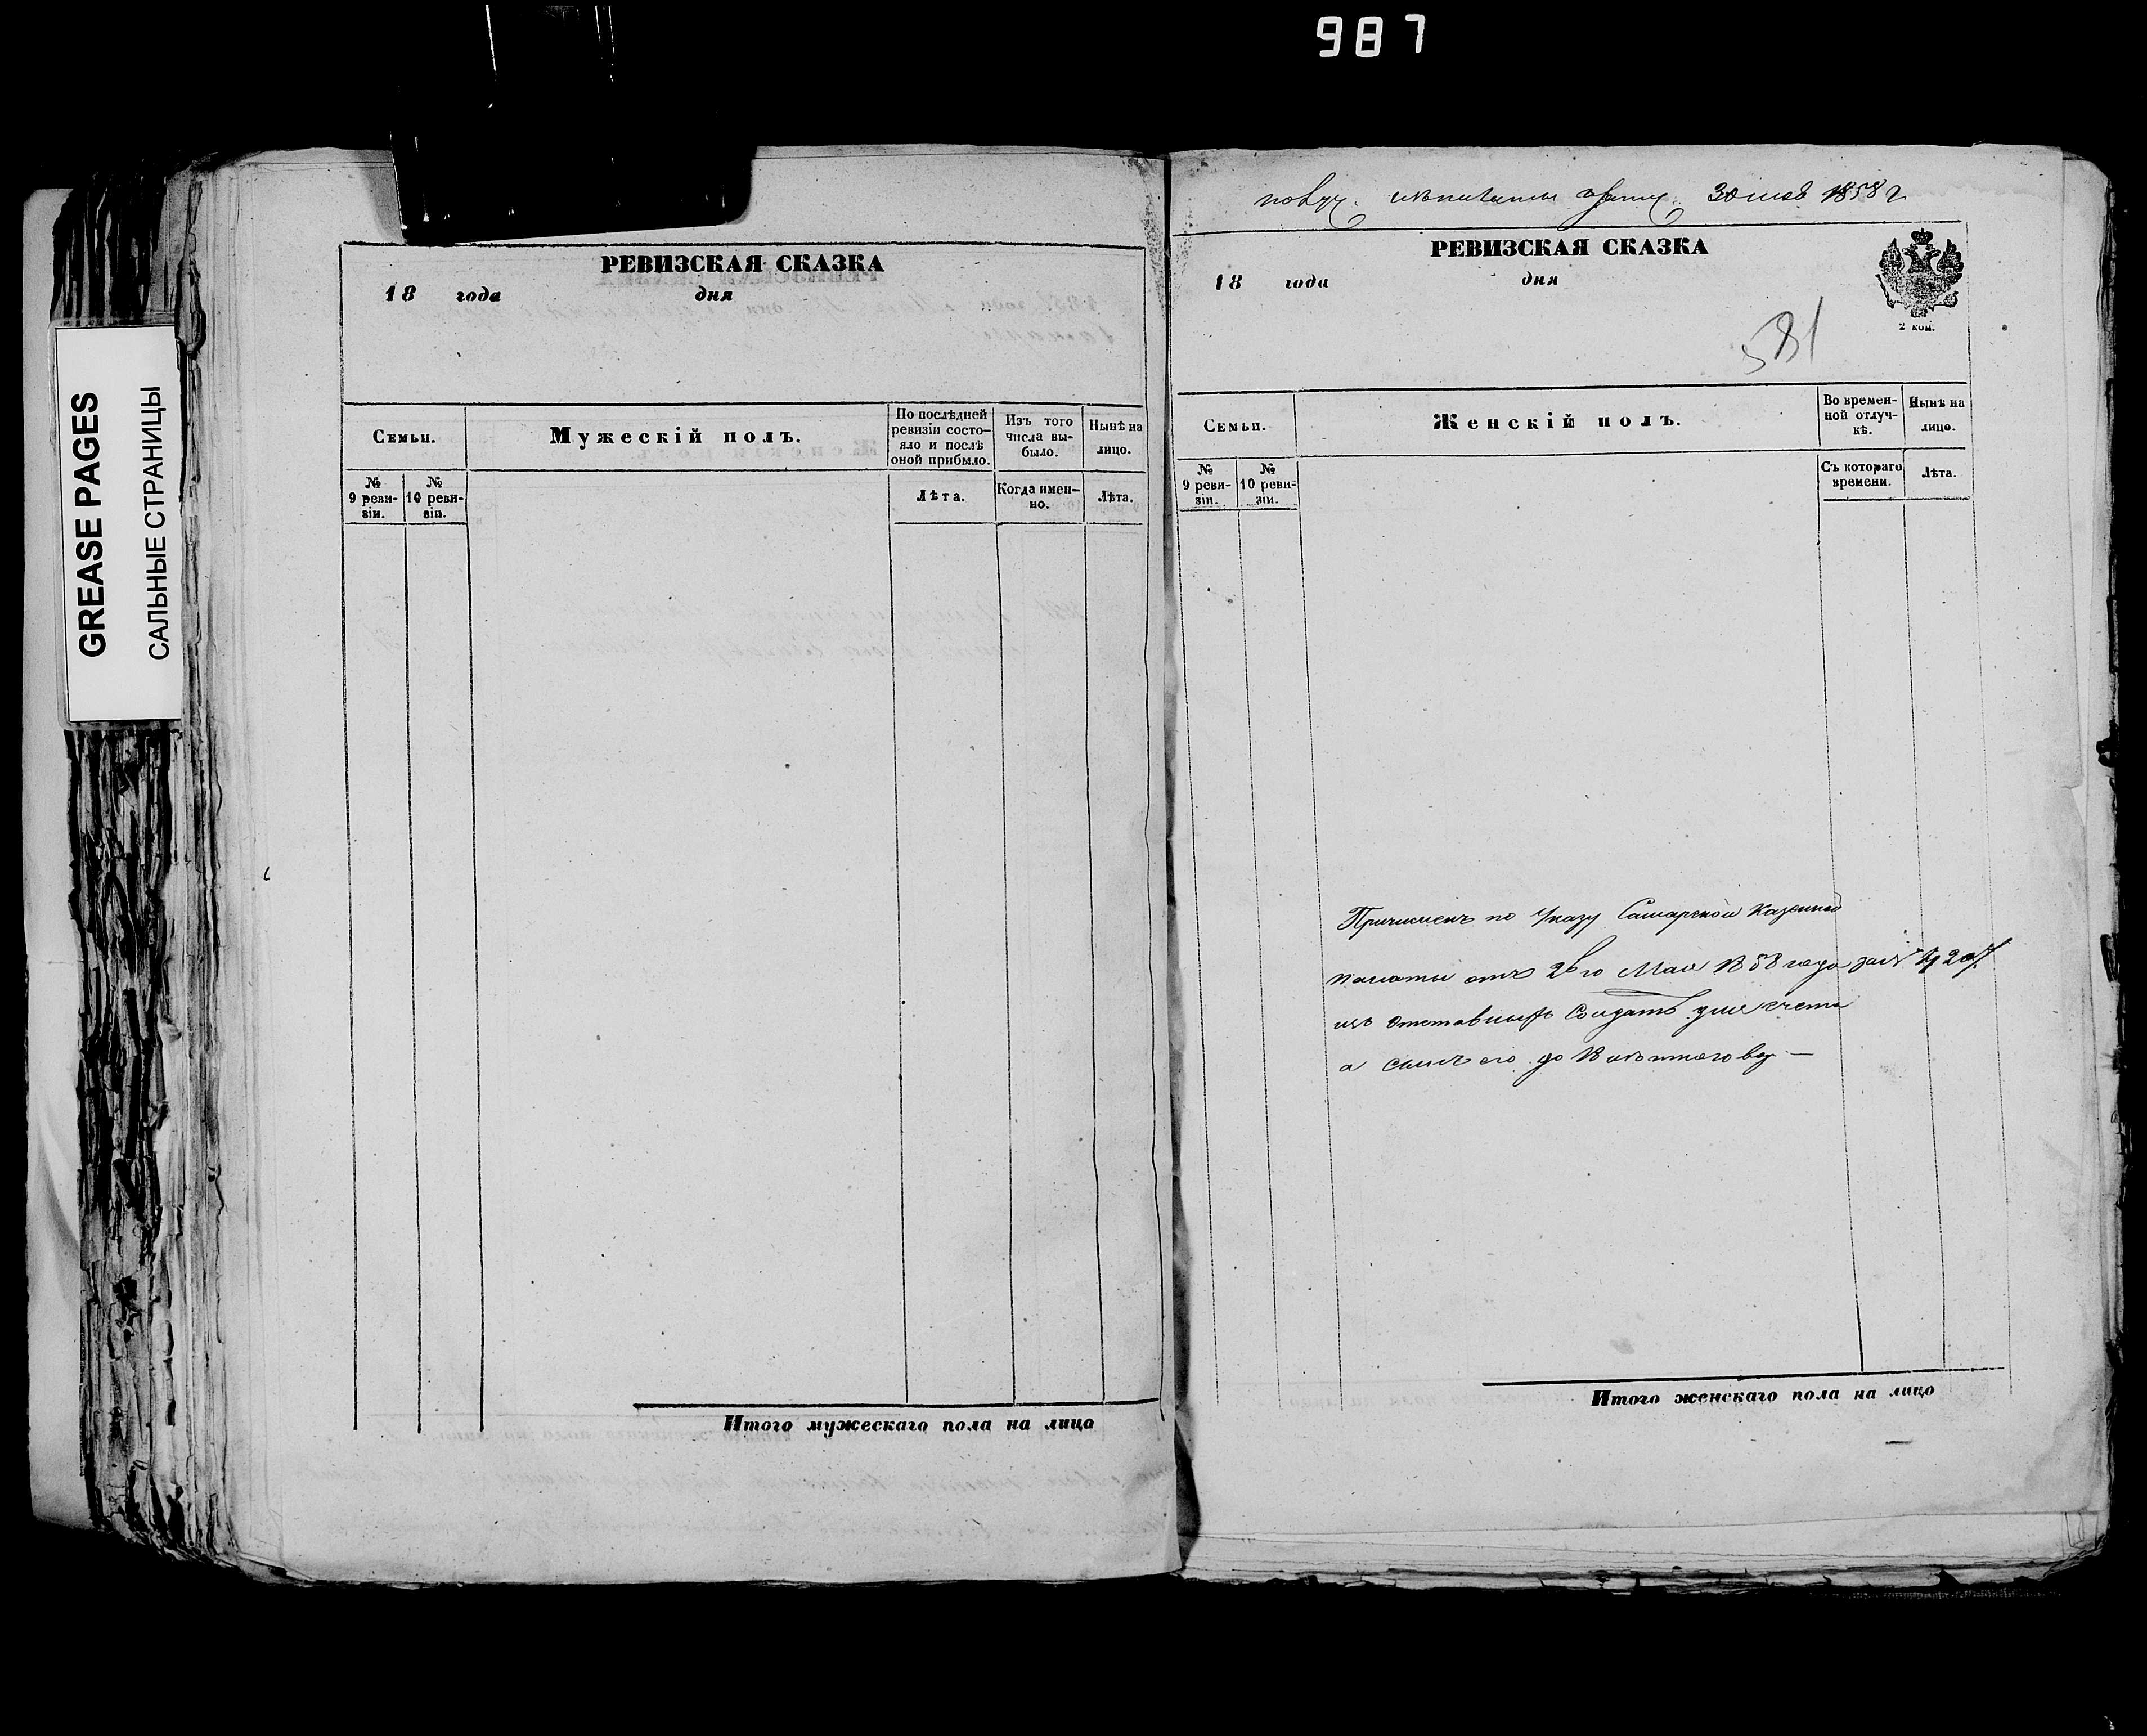 987
GREASE PAGES
САЛЬНЫЕ СТРАНИЦЫ
РЕВИЗСКАЯ СКАЗКА
18 года дня
Семьи.
Мужескій полъ.
По послѣдней
ревизіи состо-
яло и послѣ
оной прибыло.
Изъ того
числа вы-
было.
Нынѣ на
лицо.
№
9 реви-
зіи.
№
10 реви-
зіи.
Лѣта.
Когда имен-
но.
Лѣта.
Итого мужескаго пола на лицо
30 1858 г.
РЕВИЗСКАЯ СКАЗКА
18 года дня
2 коп.
581
Семьи.
Женскій полъ.
Во времен-
ной отлуч-
кѣ.
Нынѣ на
лицо.
№
9 реви-
зіи.
№
10 реви-
зіи.
Съ котораго
времени.
Лѣта.
Причисленъ по указу Самарской Казенной
палаты отъ Мая 1858 года за №
изъ отставныхъ Солдатъ для счета
а сынъ его до
Итого женскаго пола на лицо